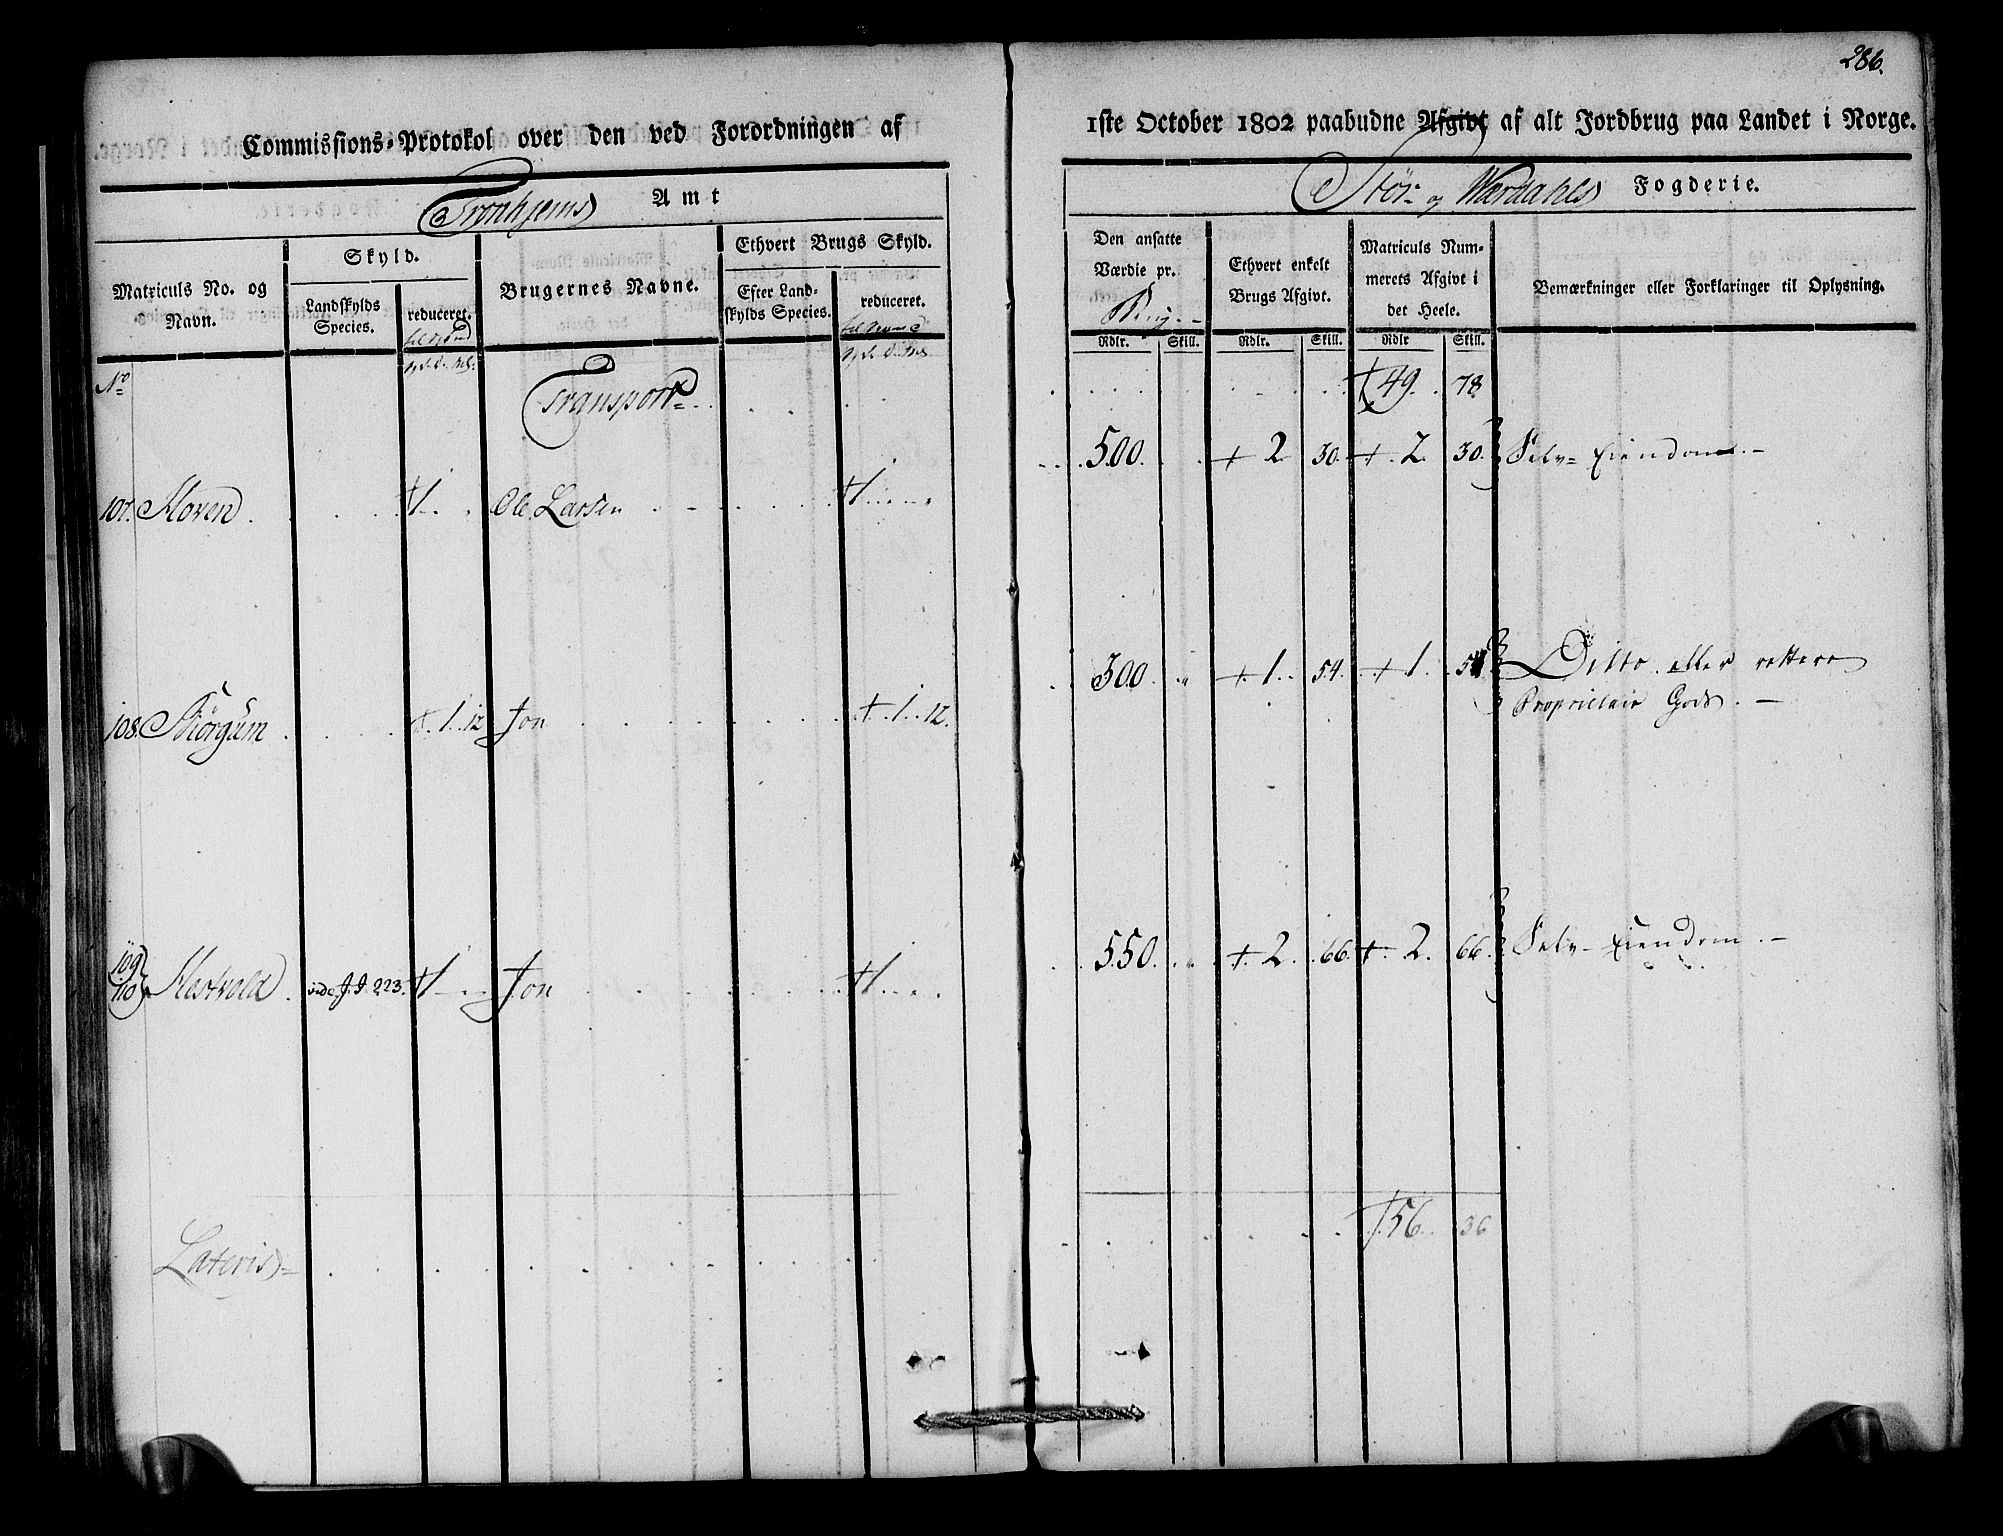 286.
Commissions-Protokol over den ved Forordningen af
1ste October 1802 paabudne Afgivt af alt Jordbrug paa Landet i Norge.
Tronhjems Amt
Stör- og Værdahls Fogderie.
Matriculs No. og Navn.
Skyld.
Landskylds Species.
reduceret.
Brugernes Navne.
Ethvert Brugs Skyld.
Efter Landskylds Species.
reduceret.
Den ansatte Værdie pr.
Ethvert enkelt Brugs Afgivt.
Matriculs Nummerets Afgivt i det Heele.
Bemærkninger eller Forklaringer til Oplysning.
Rdlr. Skill. Rdlr. Skill. Rdlr Skill.
No
Transport . . . . . . 49. 78
107. Hoven . . . . 1 . . Ole Larsen . . . . 1 . . . 500. . . 2 30. 2. 30. Selv-Eiendom. -
108. Kiörgum . . . . 1. 12 Jon . . . . . 1. 12. 300. „ 1. 54. 1. 54 Ditto eller rettere
Proprietair Gods. -
109 110 Hestvold . vide J. J. 223. 1 - - Jon . . . . . 1 . . . 550. „ 2. 66. 2. 66. Selv-Eiendom. -
Lateris - . . . . . . . . . 56. 36